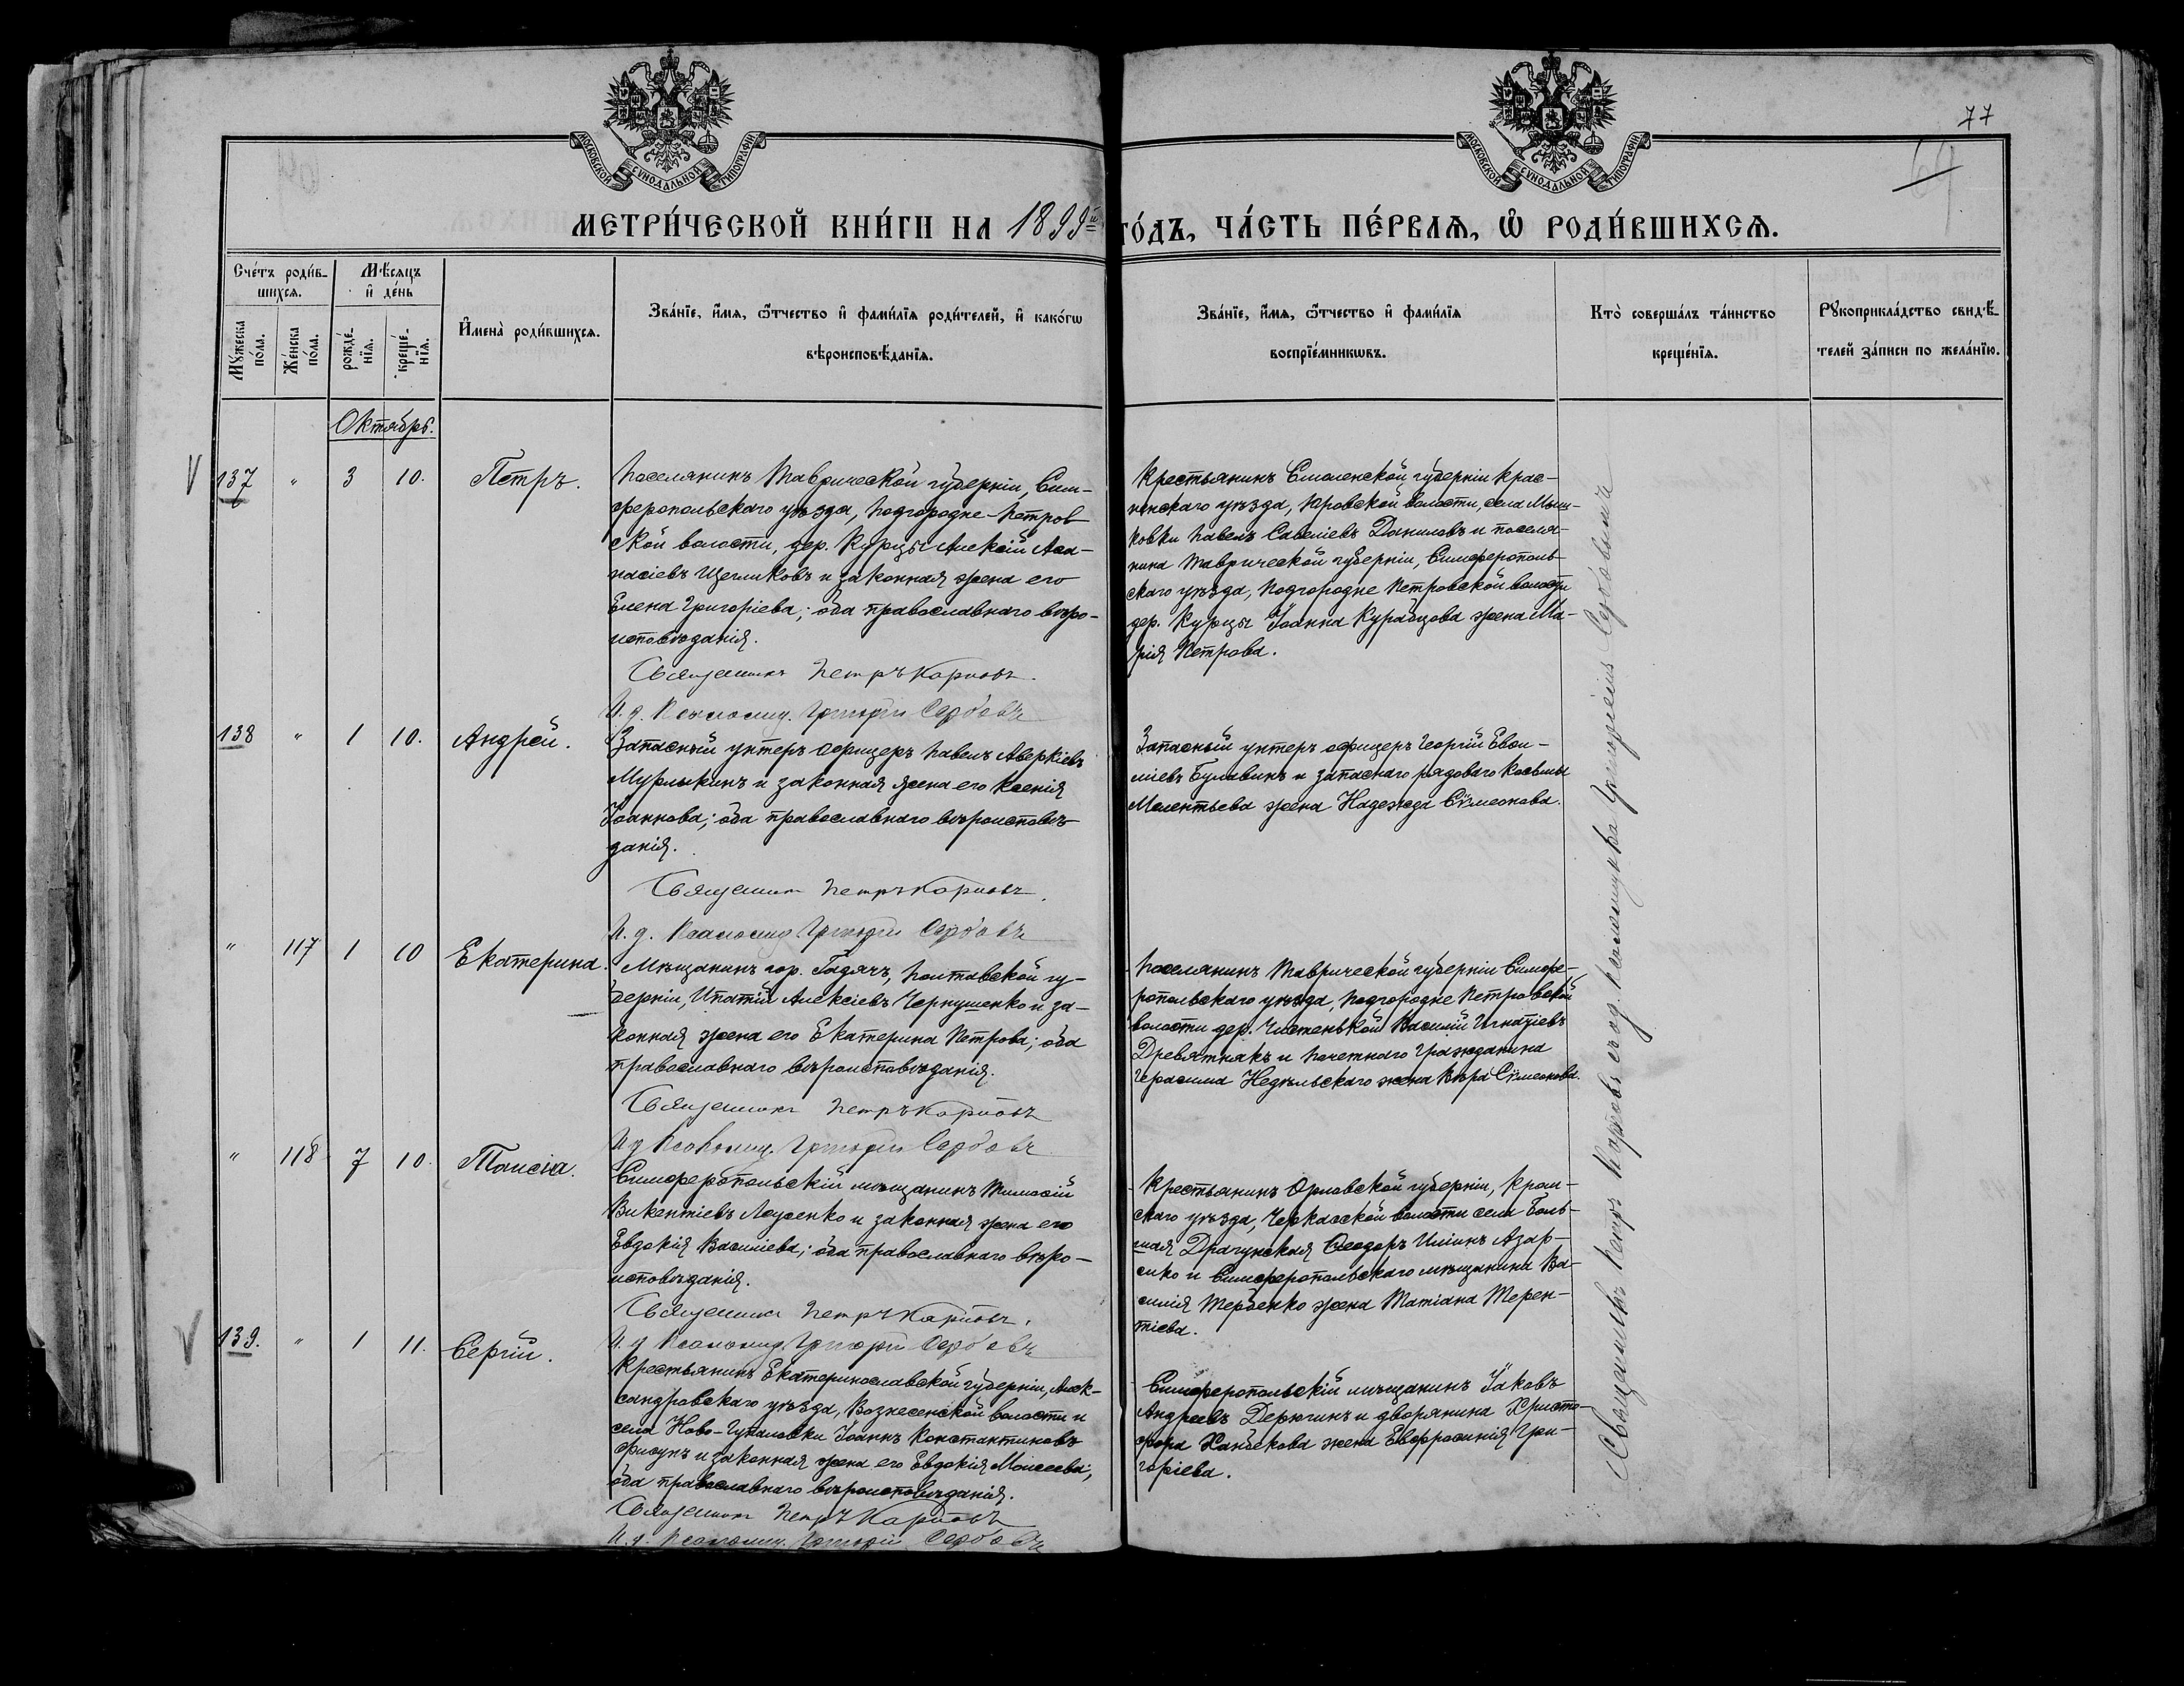 77
69
МОСКОВСКОЙ СѴНОДАЛЬНОЙ ТИПОГРАФІИ
МОСКОВСКОЙ СѴНОДАЛЬНОЙ ТИПОГРАФІИ
МЕТРИ́ЧЕСКОЙ КНИ́ГИ НА 1899й ГО́ДЪ, ЧА́СТЬ ПЕ́РВАѦ, Ѡ РОДИ́ВШИХСѦ.
Сче́тъ роди́в-
шихсѧ.
Мѣ́сѧцъ
и҆ де́нь
Мꙋ́жеска
по́ла.
Же́нска
по́ла.
рожде́-
нїѧ.
креще́-
нїѧ.
И҆мена̀ роди́вшихсѧ.
Зва́нїе, и҆́мѧ, ѻ҆́тчество и҆ фами́лїѧ роди́телей, и҆ како́гѡ
вѣроисповѣ́данїѧ.
Зва́нїе, и҆́мѧ, ѻ҆́тчество и҆ фами́лїѧ
воспрїе́мникѡвъ.
Кто̀ соверша́лъ та́инство
креще́нїѧ.
Рꙋкоприкла́дство свидѣ́-
телей за́писи по жела́нїю.
Октябрь.
137 " 3 10. Петръ.
Поселянинъ Таврической губерніи, Сим-
феропольскаго уѣзда, Подгородне-Петров
ской волости, дер. Курцы Алексій Аѳа-
насіевъ Щегликовъ и законная жена его
Елена Григоріева; оба православнаго вѣро-
исповѣданія.
Священникъ Петръ Карповъ.
И. д. Псаломщ. Григорій Сербовъ
Крестьянинъ Смоленской губерніи Крас-
ненскаго уѣзда, волости, села
ковки Павелъ Савеліевъ Даниловъ и поселя-
нина Таврической губерніи, Симферополь-
скаго уѣзда, Подгородне Петровской волости
дер. Курцы Іоанна Курабцова жена Ма-
рія Петрова.
138 " 1 10. Андрей.
Запасный унтеръ офицеръ Павелъ Аверкіевъ
Мурлыкинъ и законная жена его Ксенія
Іоаннова; оба православнаго вѣроисповѣ-
данія.
Священникъ Петръ Карповъ.
И. д. Псаломщ Григорій Сербовъ
Запасный унтеръ офицеръ Георгій Евѳи-
міевъ Булавинъ и запаснаго рядоваго Косьмы
Мелентьева жена Надежда Сѷмеонова.
" 117 1 10 Екатерина.
Мѣщанинъ гор. Гадячъ, Полтавской гу-
берніи, Ипатій Алексіевъ Чернушенко и за-
конная жена его Екатерина Петрова; оба
православнаго вѣроисповѣданія.
Священникъ Петръ Карповъ
И д Псаломщ. Григорій Сербовъ
Поселянинъ Таврической губерніи Симфе-
ропольскаго уѣзда, Подгородне Петровской
волости дер. Чистенькой Василій Игнатіевъ
Древятнякъ и почетнаго гражданина
Герасима Недѣльскаго жена Вѣра Сѷмеонова.
" 118 7 10. Таисія.
Симферопольскій мѣщанинъ Тимоѳій
Викентіевъ Лоусенко и законная жена его
Евдокія Василіева; оба православнаго вѣро-
исповѣданія.
Священникъ Петръ Карповъ.
И. д Псаломщ Григорій Сербовъ
Крестьянинъ Орловской губерніи, Кром-
скаго уѣзда, Черкасской волости села Боль-
шая Драгунская Ѳеодоръ Иліинъ Азар-
енко и Симферопольскаго мѣщанина Ва-
силія Тербенко жена Татіана Терен-
тіева.
139. " 1 11. Сергій.
Крестьянинъ Екатеринославской губерніи, Алек-
сандровскаго уѣзда, Вознесенской волости и
села Ново-Гупаловки Іоаннъ Константиновъ
Фисунъ и законная жена его Евдокія Моисеева;
оба православнаго вѣроисповѣданія.
Священникъ Петръ Карповъ
И. д. Псаломщ. Григорій Сербовъ
Симферопольскій мѣщанинъ Іаковъ
Андреевъ Дерюгинъ и дворянина Христо-
фора Ханбекова жена Евфросинія Гри-
горіева.
Священникъ Петръ Карповъ съ и. д. псаломщика Григоріемъ Сербовымъ